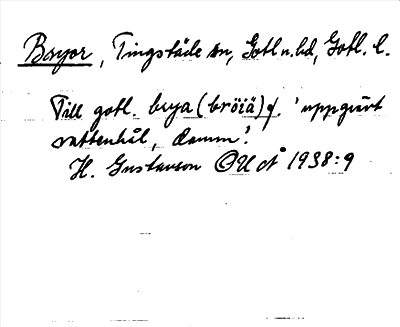 Bryor, Tingstäde sn, Gotl. n. hd, Gotl. l.
Till gotl. brya (bröiä) f. 'uppgrävt
vattenhål, damm'.
H. Gustavson OUÅ 1938:9